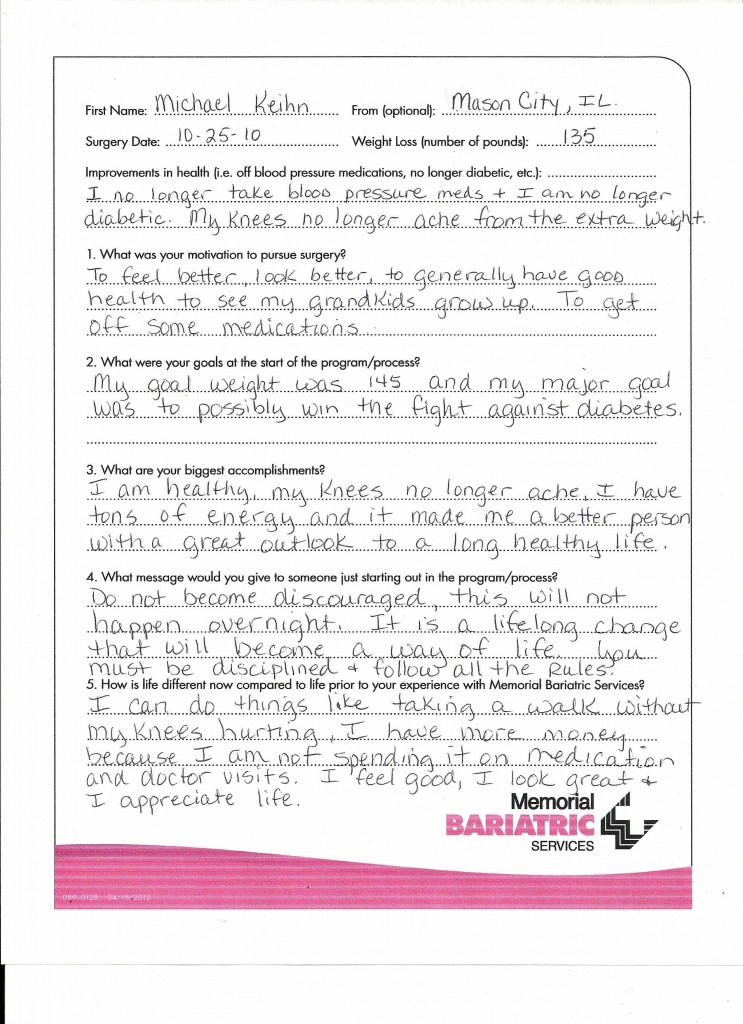 First Name: Michael Keihn From (optional): Mason City, IL.
Surgery Date: 10-25-10 Weight Loss (number of pounds): 135
Improvements in health (i.e. off blood pressure medications, no longer diabetic, etc.):
I no longer take blood pressure meds + I am no longer
diabetic. My Knees no longer ache from the extra weight.
1. What was your motivation to pursue surgery?
To feel better, look better, to generally have good
health to see my grandkids grow up. To get
off some medications.
2. What were your goals at the start of the program/process?
My goal weight was 145 and my major goal
was to possibly win the fight against diabetes.
3. What are your biggest accomplishments?
I am healthy, my Knees no longer ache, I have
tons of energy and it made me a better person
with a great outlook to a long healthy life.
4. What message would you give to someone just starting out in the program/process?
Do not become discouraged, this will not
happen overnight. It is a lifelong change
that will become a way of life. You
must be disciplined + follow all the Rules.
5. How is life different now compared to life prior to your experience with Memorial Bariatric Services?
I can do things like taking a walk without
my Knees hurting, I have more money
because I am not spending it on medication
and doctor visits. I feel good, I look great +
I appreciate life.
Memorial
BARIATRIC
SERVICES
089-0128 04/16/2012